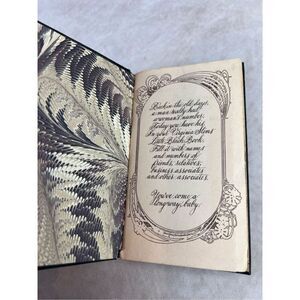 Back in the old days,
a man really had
a woman's number.
Today you have his.
In your Virginia Slims
Little Black Book.
Fill it with names
and numbers of
friends, relatives,
business associates
and other associates.
You've come a
long way, baby.